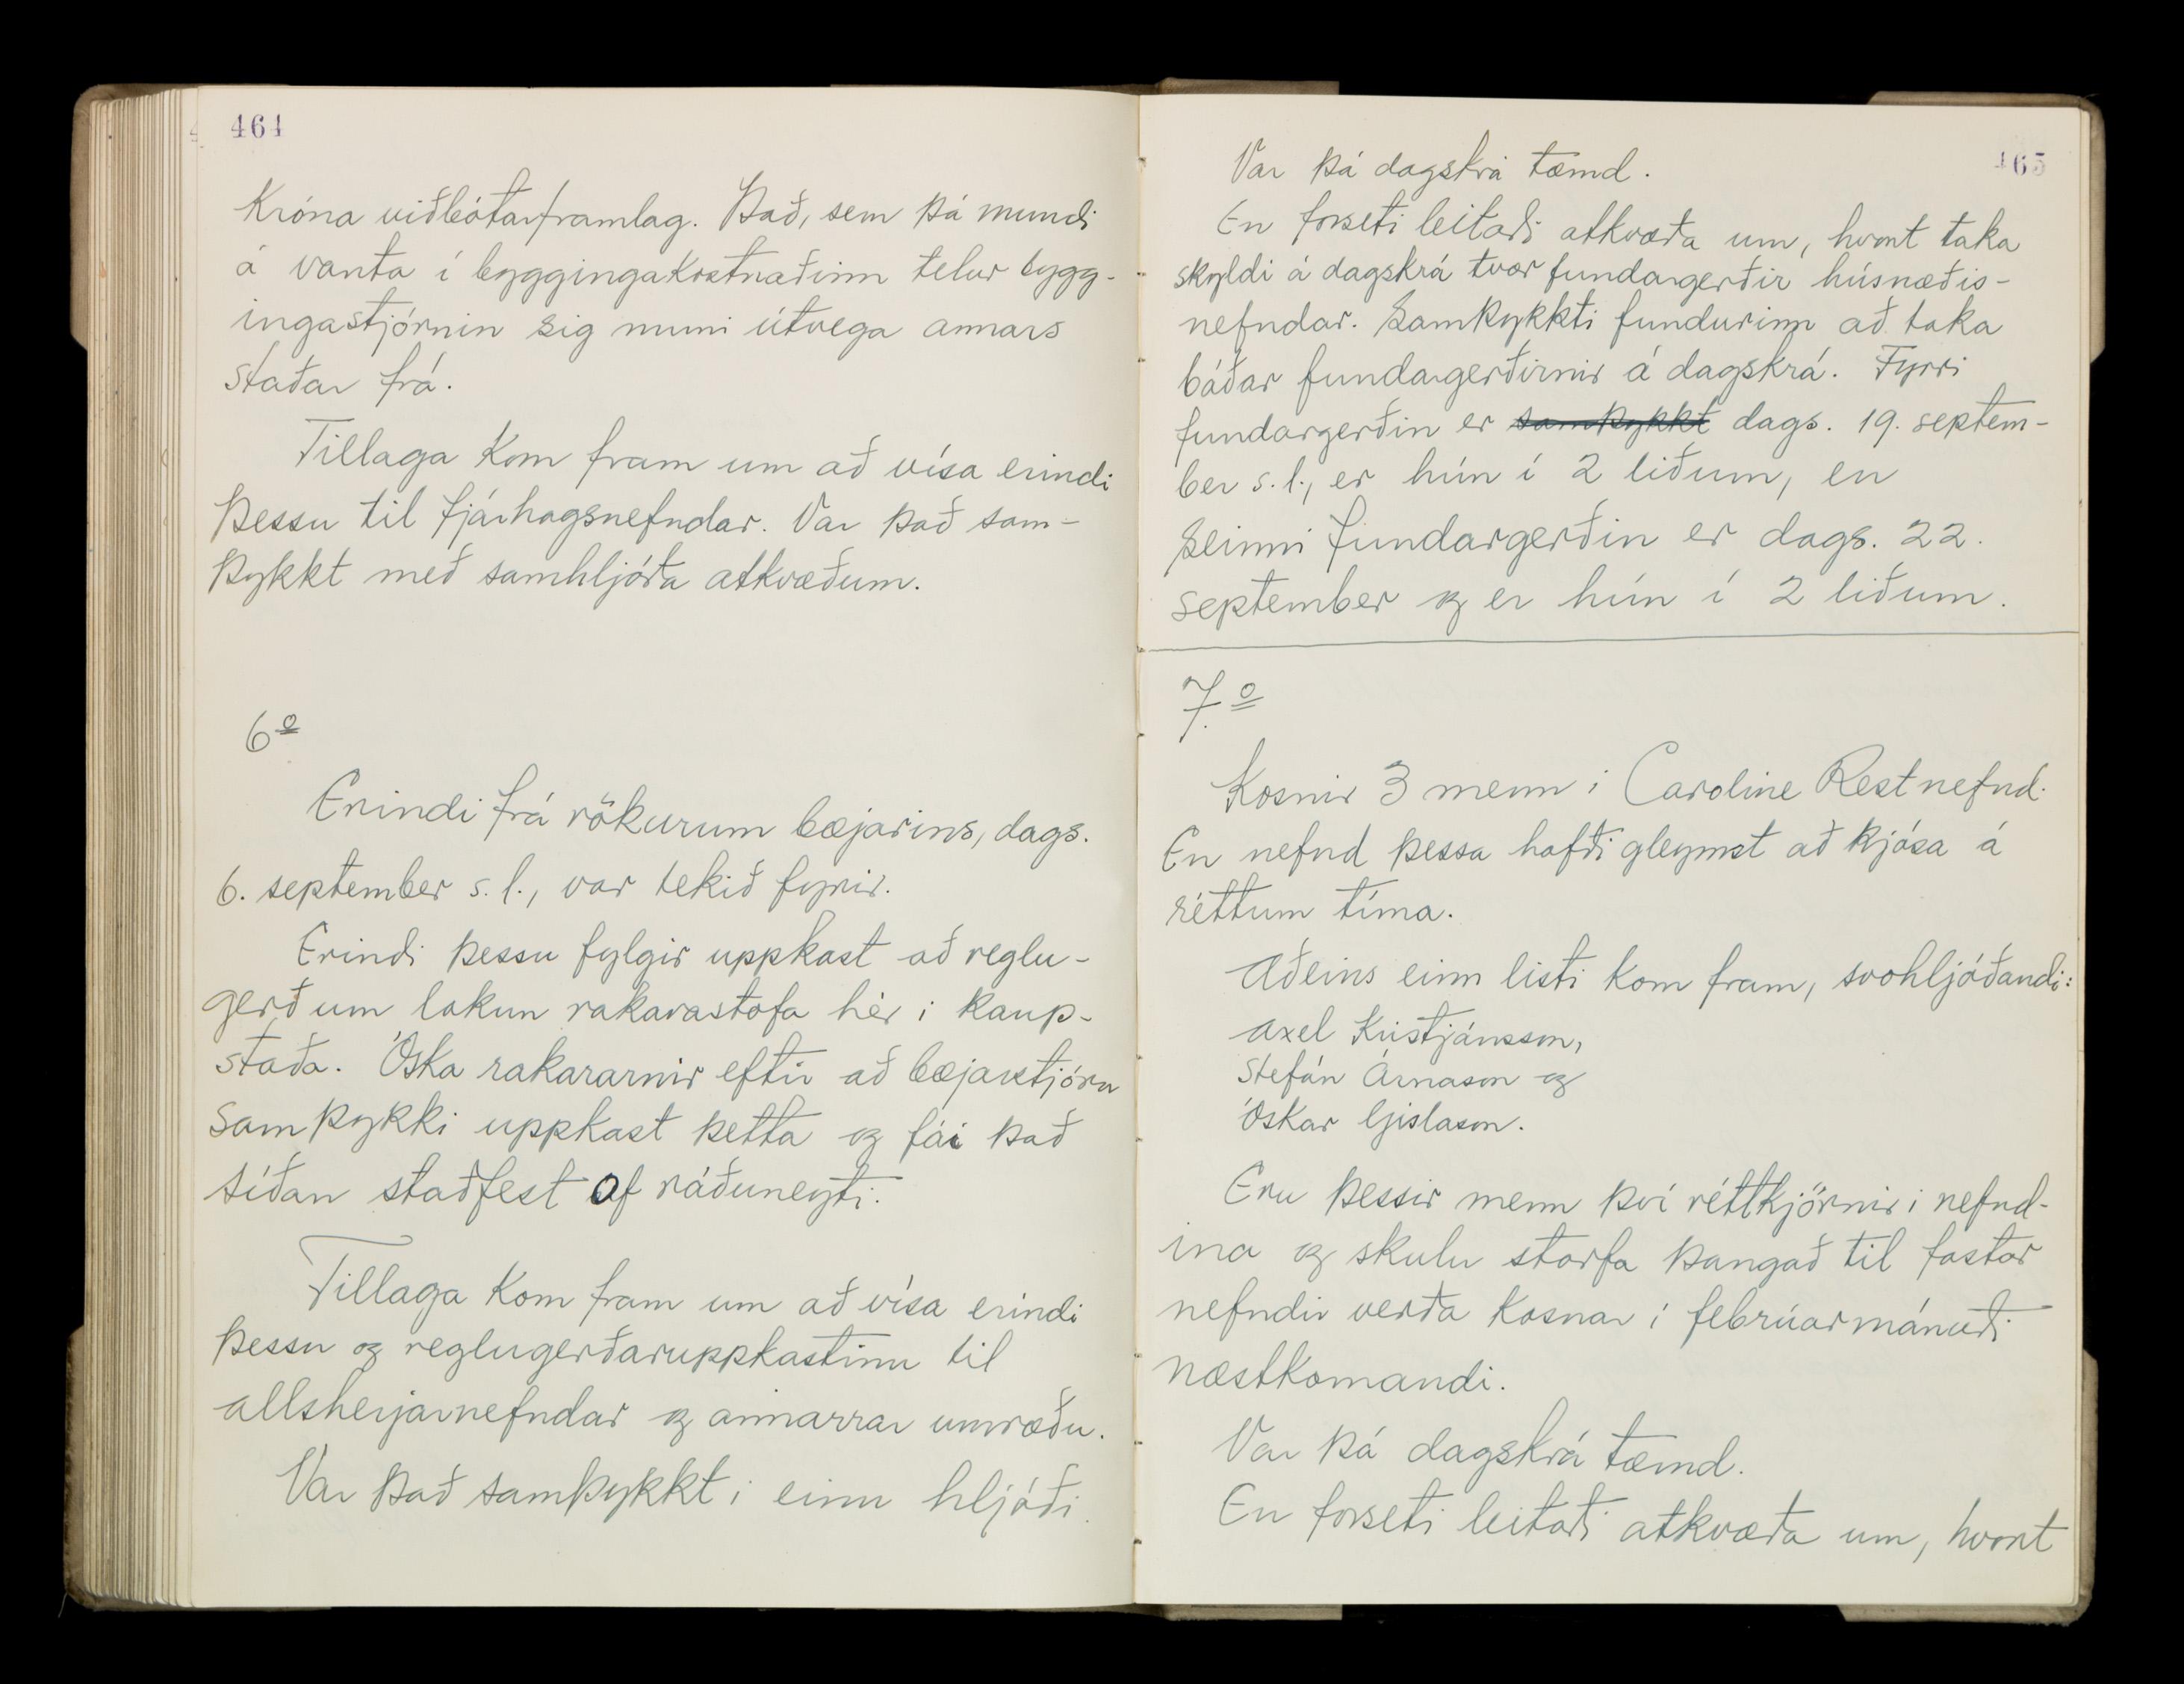 464
Króna viðbótarframlag. Það, sem þá mundi
á vanta í byggingakostnaðinn telur bygg-
ingastjórnin sig muni útvega annars
staðar frá.
Tillaga kom fram um að vísa erindi
þessu til fjárhagsnefndar. Var það sam-
þykkt með samhljóða atkvæðum.
6o
Erindi frá rökurum bæjarins, dags.
6. september s.l., var tekið fyrir.
Erindi þessu fylgir uppkast að reglu-
gerð um lokun rakarastofa hér i kaup-
staða. Óska rakararnir eftir að bæjarstjórn
samþykki uppkast þetta og fái það
síðan staðfest af ráðuneyti.
Tillaga kom fram um að vísa erindi
þessu og reglugerðaruppkastinu til
allsherjarnefndar og annarrar umræðu.
Var það samþykkt i einu hljóði.
465
Var þá dagskrá tæmd.
En forseti leitaði atkvæða um, hvort taka
skyldi á dagskrá tvær fundargerðir húsnæðis-
nefndar. Samþykkti fundurinn að taka
báðar fundargerðirnir á dagskrá. Fyrri
fundargerðin er samþykkt dags. 19. septem-
ber s.l., er hún í 2 liðum, en
seinni fundargerðin er dags. 22.
september og er hún í 2 liðum.
7.o
Kosnir 3 menn i Caroline Rest nefnd.
En nefnd þessa hafði gleymst að kjósa á
réttum tíma.
Aðeins einn listi kom fram, svohljóðandi:
Axel Kristjánsson,
Stefán Árnason og
Óskar Gíslason.
Eru þessir menn því réttkjörnir i nefnd-
ina og skulu starfa þangað til fastar
nefndir verða kosnar i febrúarmánuði
næstkomandi.
Var þá dagskrá tæmd.
En forseti leitaði atkvæða um, hvort